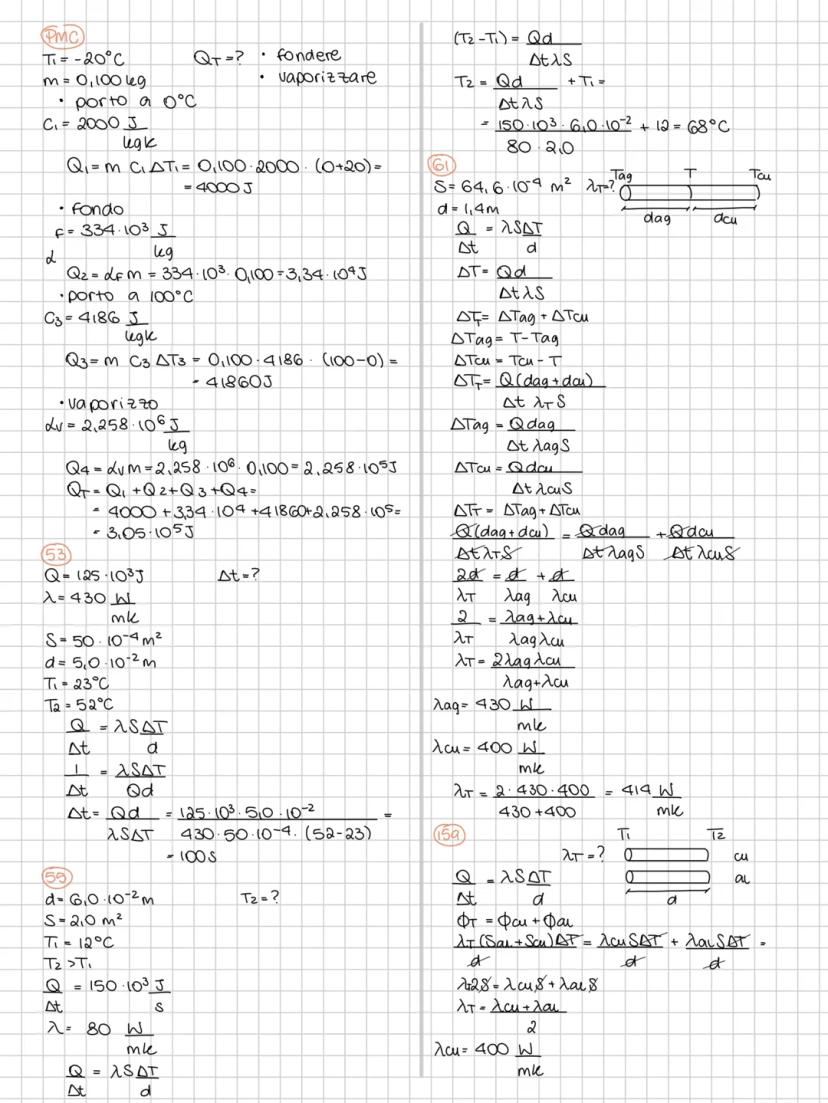 PMC
T₁ = -20°C    Q_T = ?  • fondere
m = 0,100 kg    • vaporizzare
• porto a 0°C
C₁ = 2000 J/kgk
Q₁ = m C₁ ΔT₁ = 0,100 · 2000 · (0+20) =
= 4000 J
• fondo
F = 334·10³ J/kg
L
Q₂ = L_F m = 334·10³ · 0,100 = 3,34·10⁴ J
• porto a 100°C
C₃ = 4186 J/kgk
Q₃ = m C₃ ΔT₃ = 0,100 · 4186 · (100-0) =
= 41860 J
• vaporizzo
Lv = 2,258·10⁶ J/kg
Q₄ = Lv m = 2,258·10⁶ · 0,100 = 2,258·10⁵ J
Q_T = Q₁ + Q₂ + Q₃ + Q₄ =
= 4000 + 3,34·10⁴ + 41860 + 2,258·10⁵ =
= 3,05·10⁵ J
53
Q = 125·10³ J    Δt = ?
λ = 430 W/mk
S = 50·10⁻⁴ m²
d = 5,0·10⁻² m
T₁ = 23°C
T₂ = 52°C
Q/Δt = λSΔT/d
1/Δt = λSΔT/Qd
Δt = Qd/λSΔT = 125·10³·5,0·10⁻²/430·50·10⁻⁴·(52-23) =
= 100 s
55
d = 6,0·10⁻² m    T₂ = ?
S = 2,0 m²
T₁ = 12°C
T₂ > T₁
Q/Δt = 150·10³ J/s
λ = 80 W/mk
Q/Δt = λSΔT/d
(T₂ - T₁) = Qd/ΔtλS
T₂ = Qd/ΔtλS + T₁ =
= 150·10³·6,0·10⁻²/80·2,0 + 12 = 68°C
61
Tag T Tcu
S = 64,6·10⁻⁴ m²  λ_T = ?
d = 1,4 m
dag dcu
Q/Δt = λSΔT/d
ΔT = Qd/ΔtλS
ΔT_T = ΔTag + ΔTcu
ΔTag = T - Tag
ΔTcu = Tcu - T
ΔT_T = Q(dag + dcu)/Δt λ_T S
ΔTag = Qdag/Δt λag S
ΔTcu = Qdcu/Δt λcu S
ΔT_T = ΔTag + ΔTcu
Q(dag + dcu)/Δt λ_T S = Qdag/Δt λag S + Qdcu/Δt λcu S
2d/λ_T = d/λag + d/λcu
2/λ_T = λag + λcu/λag λcu
λ_T = 2λag λcu/λag + λcu
λag = 430 W/mk
λcu = 400 W/mk
λ_T = 2·430·400/430+400 = 414 W/mk
159
T₁ T₂
λ_T = ?  cu
al
d
Q/Δt = λSΔT/d
Φ_T = Φcu + Φal
λ_T(Sal + Scu)ΔT/d = λcuSΔT/d + λalSΔT/d =
λ_T2S = λcuS + λalS
λ_T = λcu + λal/2
λcu = 400 W/mk